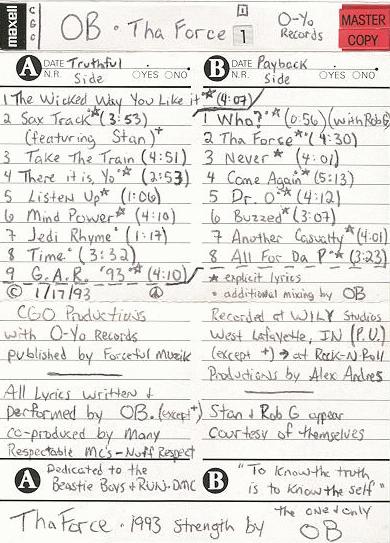 maxell
CGO
OB · Tha Force 1
O-Yo Records
MASTER COPY
A DATE Truthful
N.R. Side OYES ONO
1 The Wicked Way You Like it * (4:07)
2 Sax Track * (3:53)
(featuring Stan)+
3 Take The Train (4:51)
4 There it is, Yo * (2:53)
5 Listen Up * (1:06)
6 Mind Power * (4:10)
7 Jedi Rhyme · (1:17)
8 Time · (3:32)
9 G.A.R. '93 · * (4:10)
© 1/17/93
CGO Productions
with O-Yo Records
published by Forceful Muzik
All Lyrics written +
performed by OB. (except +)
co-produced by Many
Respectable MC's - Nuff Respect
A Dedicated to the
Beastie Boys + RUN-DMC
B DATE Payback
N.R. Side OYES ONO
1 Who? · * (0:56) (with Rob G)
2 Tha Force * · (4:30)
3 Never * (4:01)
4 Come Again * (5:13)
5 Dr. O · * (4:12)
6 Buzzed * (3:07)
7 Another Casualty * (4:01)
8 All For Da P * (3:23)
* explicit lyrics
· additional mixing by OB
Recorded at WILY Studios
West Lafayette, IN (P.U.)
(except +) → at Rock-N-Roll
Productions by Alex Andres
Stan + Rob G appear
courtesy of themselves
B "To know the truth
is to know the self"
Tha Force · 1993 strength by the one + only OB